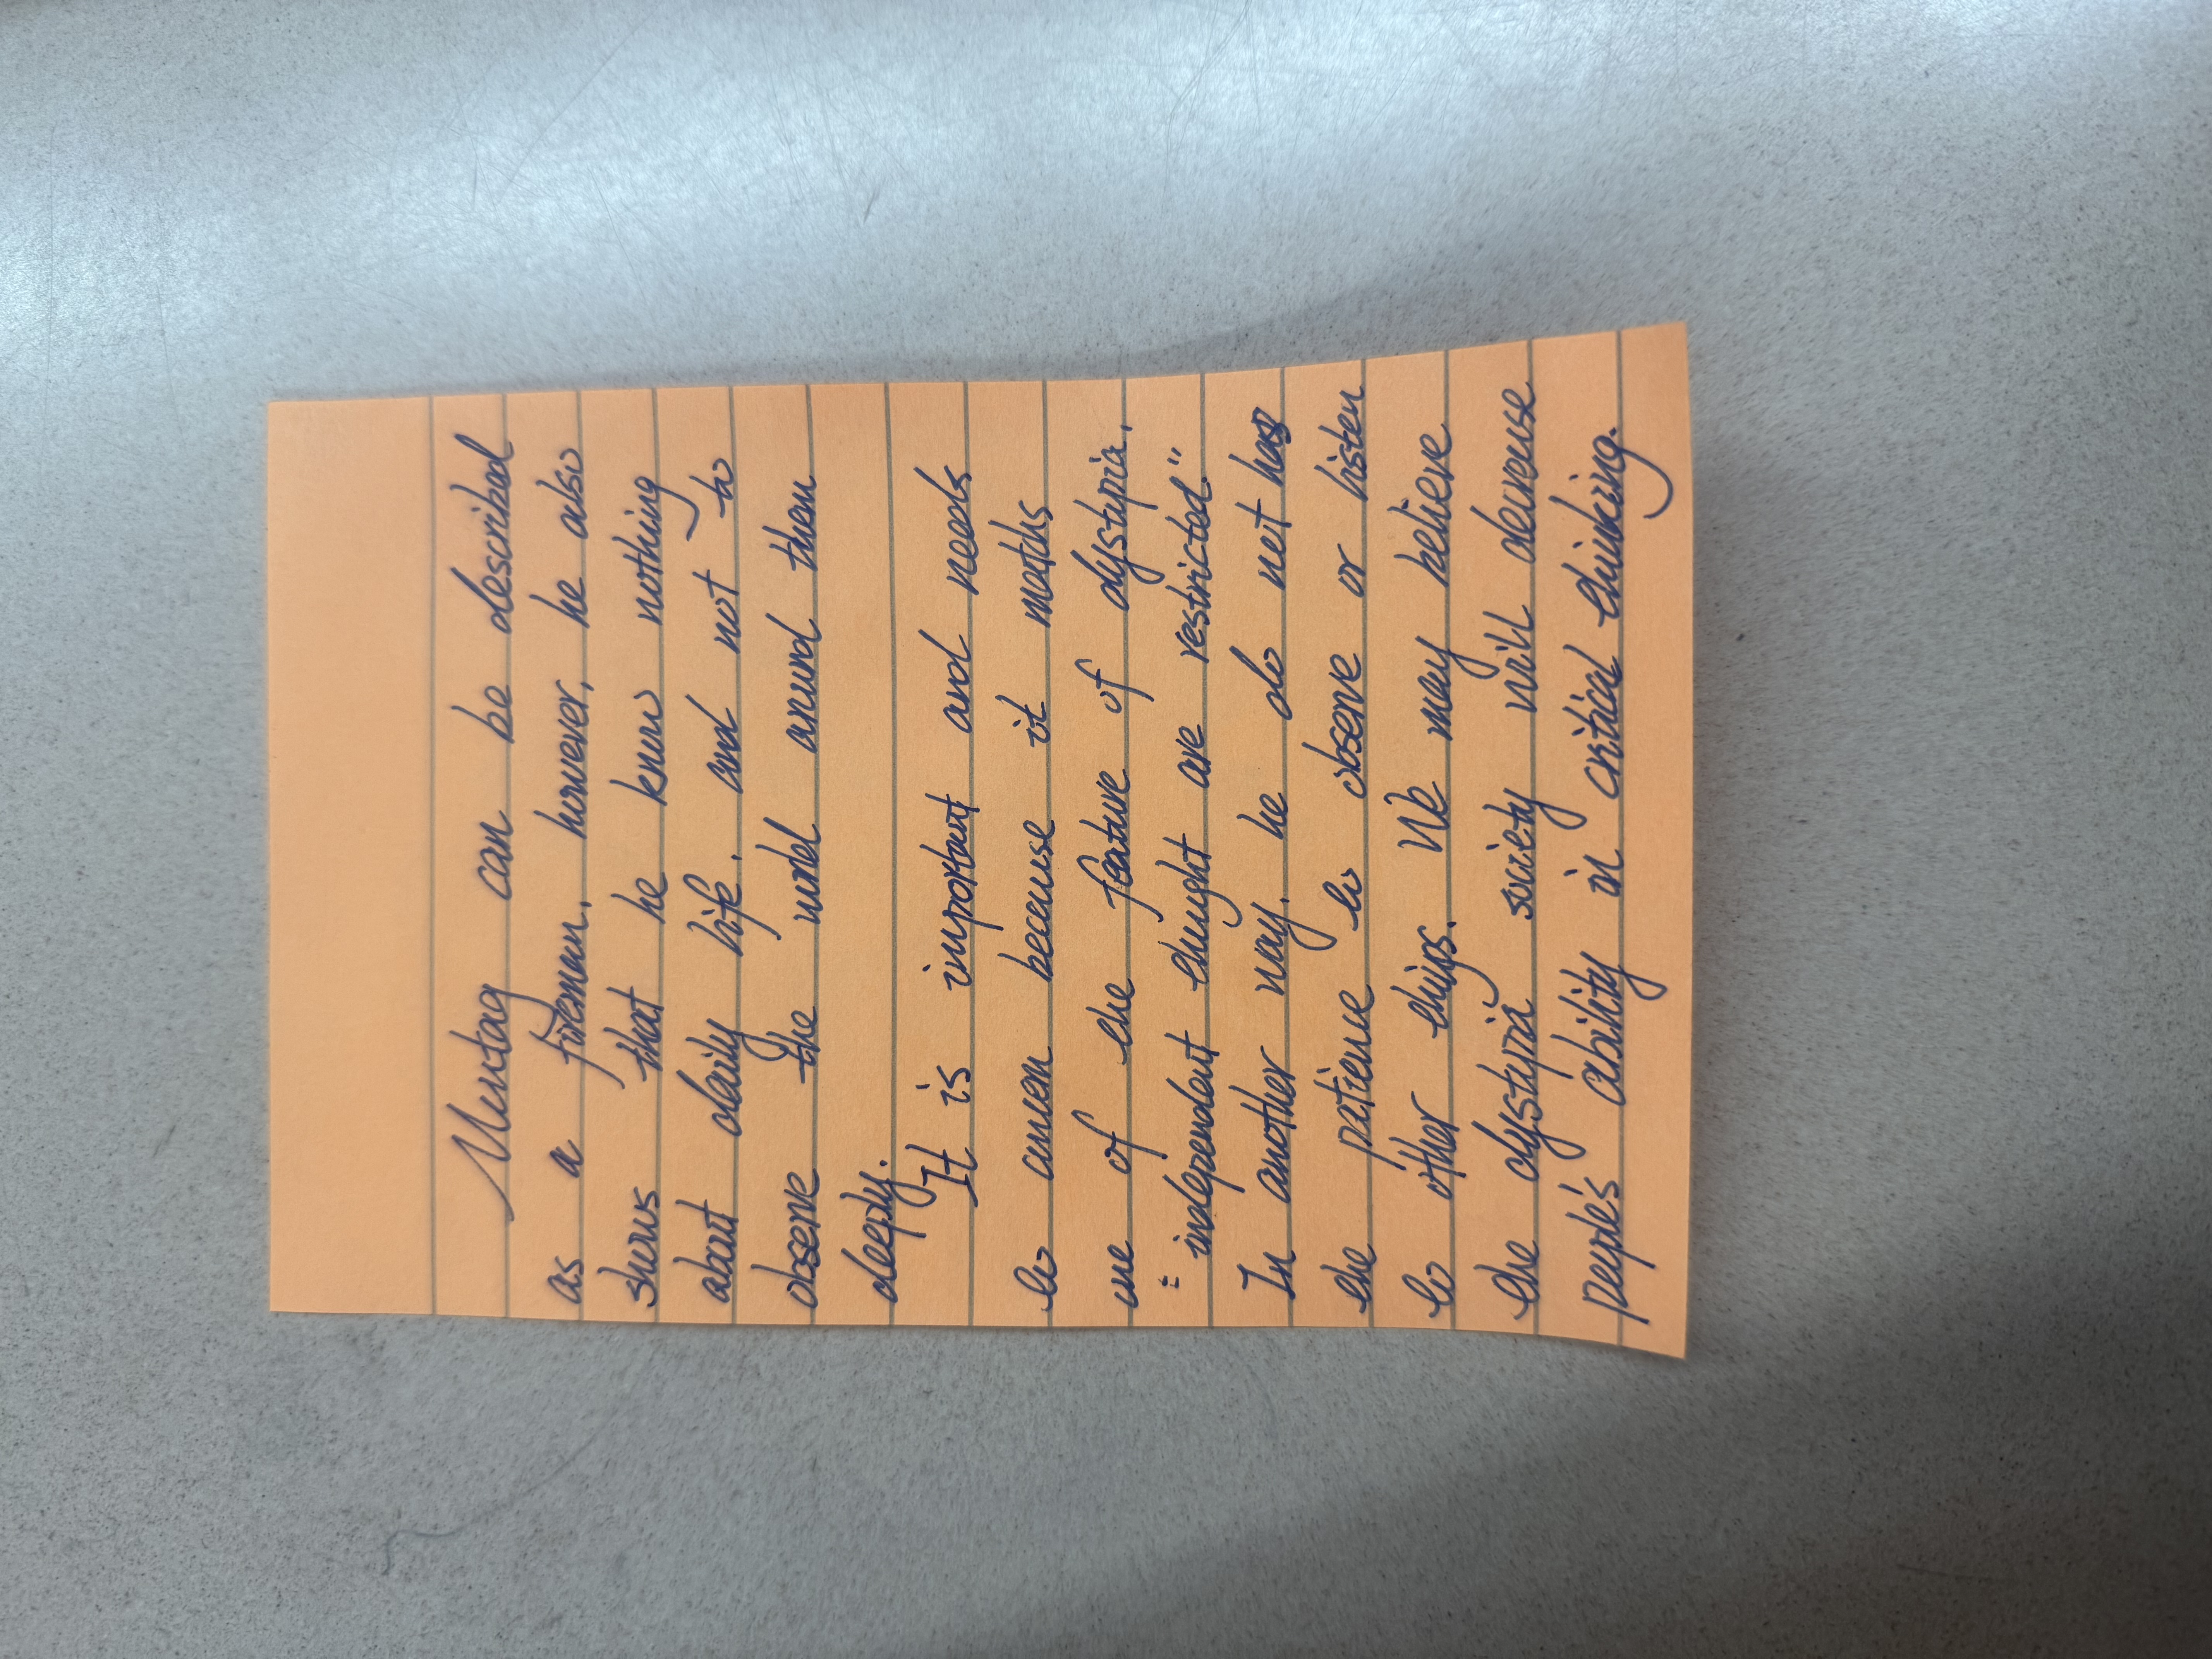 Montag can be described
as a fireman, however, he also
shows that he know nothing
about daily life, and not to
observe the world around them
deeply.
It is important and needs
to concern because it matchs
one of the feature of dystopia,
"independent thought are restricted."
In another way, he do not has
the patience to observe or listen
to other things. We may believe
the dystopia society will decrease
people's ability in critical thinking.